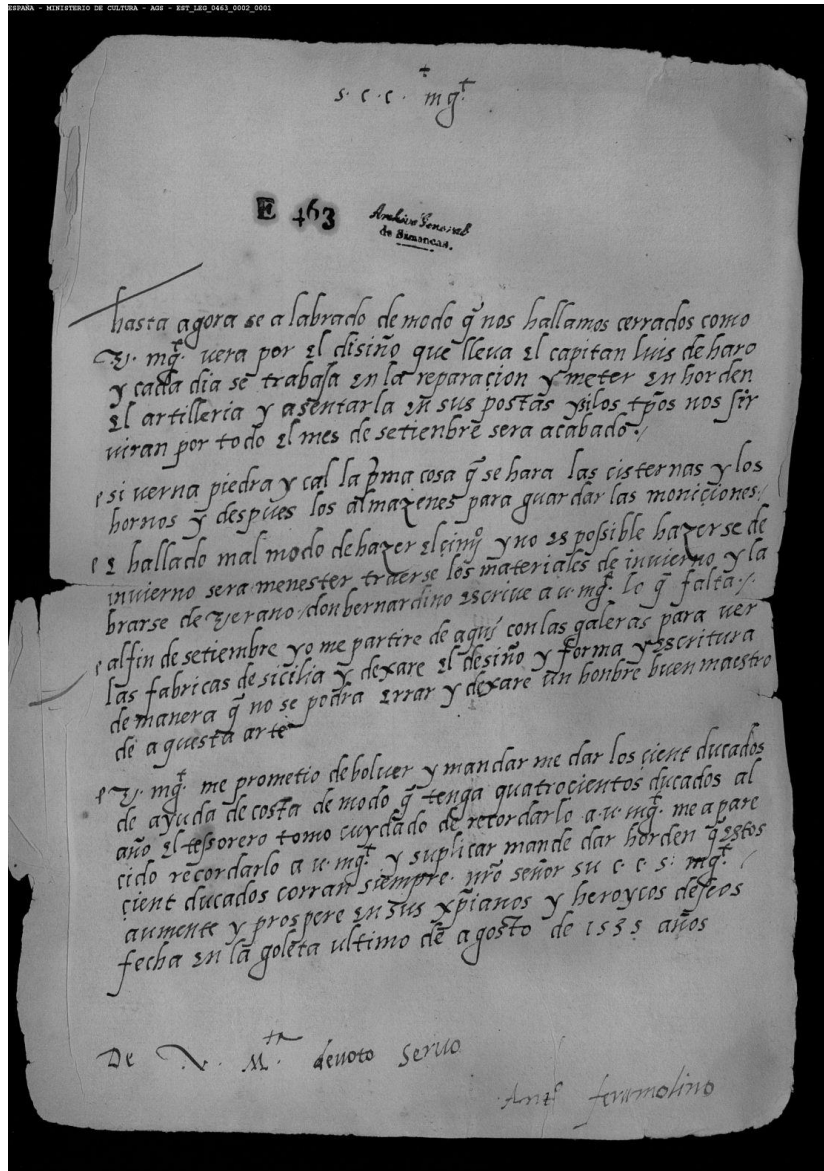 ESPAÑA - MINISTERIO DE CULTURA - AGS - EST_LEG_0463_0002_0001
s. c. c. mgt.
E 463
Archivo General
de Simancas.
hasta agora se a labrado de modo q̃ nos hallamos cerrados como
V. mgt. vera por el disiño que lleva el capitan luis de haro
y cada dia se trabaja en la reparaçion y meter en horden
el artilleria y asentarla en sus postas y si los tp̃os nos sir
viran por todo el mes de setienbre sera acabado./
si verna piedra y cal la p̃ma cosa q̃ se hara las cisternas y los
hornos y despues los almazenes para guardar las moniçiones./
e hallado mal modo de hazer el y no es possible hazer se de
invierno sera menester traer se los materiales de invierno y la
brarse de verano./ don bernardino escrive a v. mgt. lo q̃ falta./
al fin de setienbre yo me partire de aquí con las galeras para ver
las fabricas de sicilia y dexare el desiño y forma y escritura
de manera q̃ no se podra errar y dexare un honbre buen maestro
de aquesta arte
V. mgt. me prometio de bolver y mandar me dar los çient ducados
de ayuda de costa de modo q̃ tenga quatrocientos ducados al
año el tessorero tomo cuydado de recordarlo a. v. mgt. me a pare
cido recordarlo a v. mgt. y suplicar mande dar horden q̃ estos
çient ducados corran siempre. nr̃o señor su c. c. s. mgt.
aumente y prospere en sus xp̃ianos y heroycos deseos
fecha en la goleta ultimo de agosto de 1535 años
De V. Mta. devoto servo
Anto. feramolino